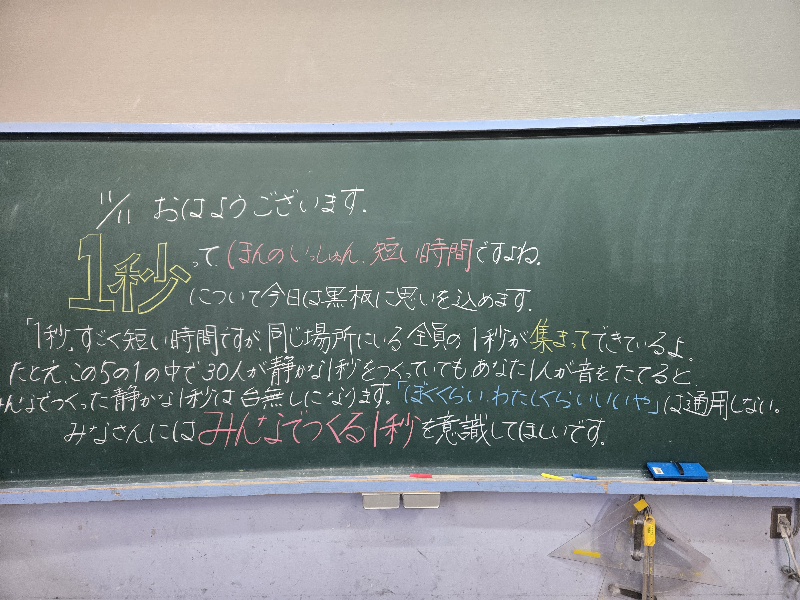 11/11 おはようございます.
1秒って、ほんのいっしゅん、短い時間ですよね.
について今日は黒板に思いを込めます.
「1秒、すごく短い時間ですが、同じ場所にいる全員の1秒が集まってできているよ。
たとえ、この5の1の中で30人が静かな1秒をつくっていても、あなた1人が音をたてると、
みんなでつくった静かな1秒は台無しになります.「ぼくくらい、わたしくらいいいや」は通用しない。
みなさんにはみんなでつくる1秒を意識してほしいです。